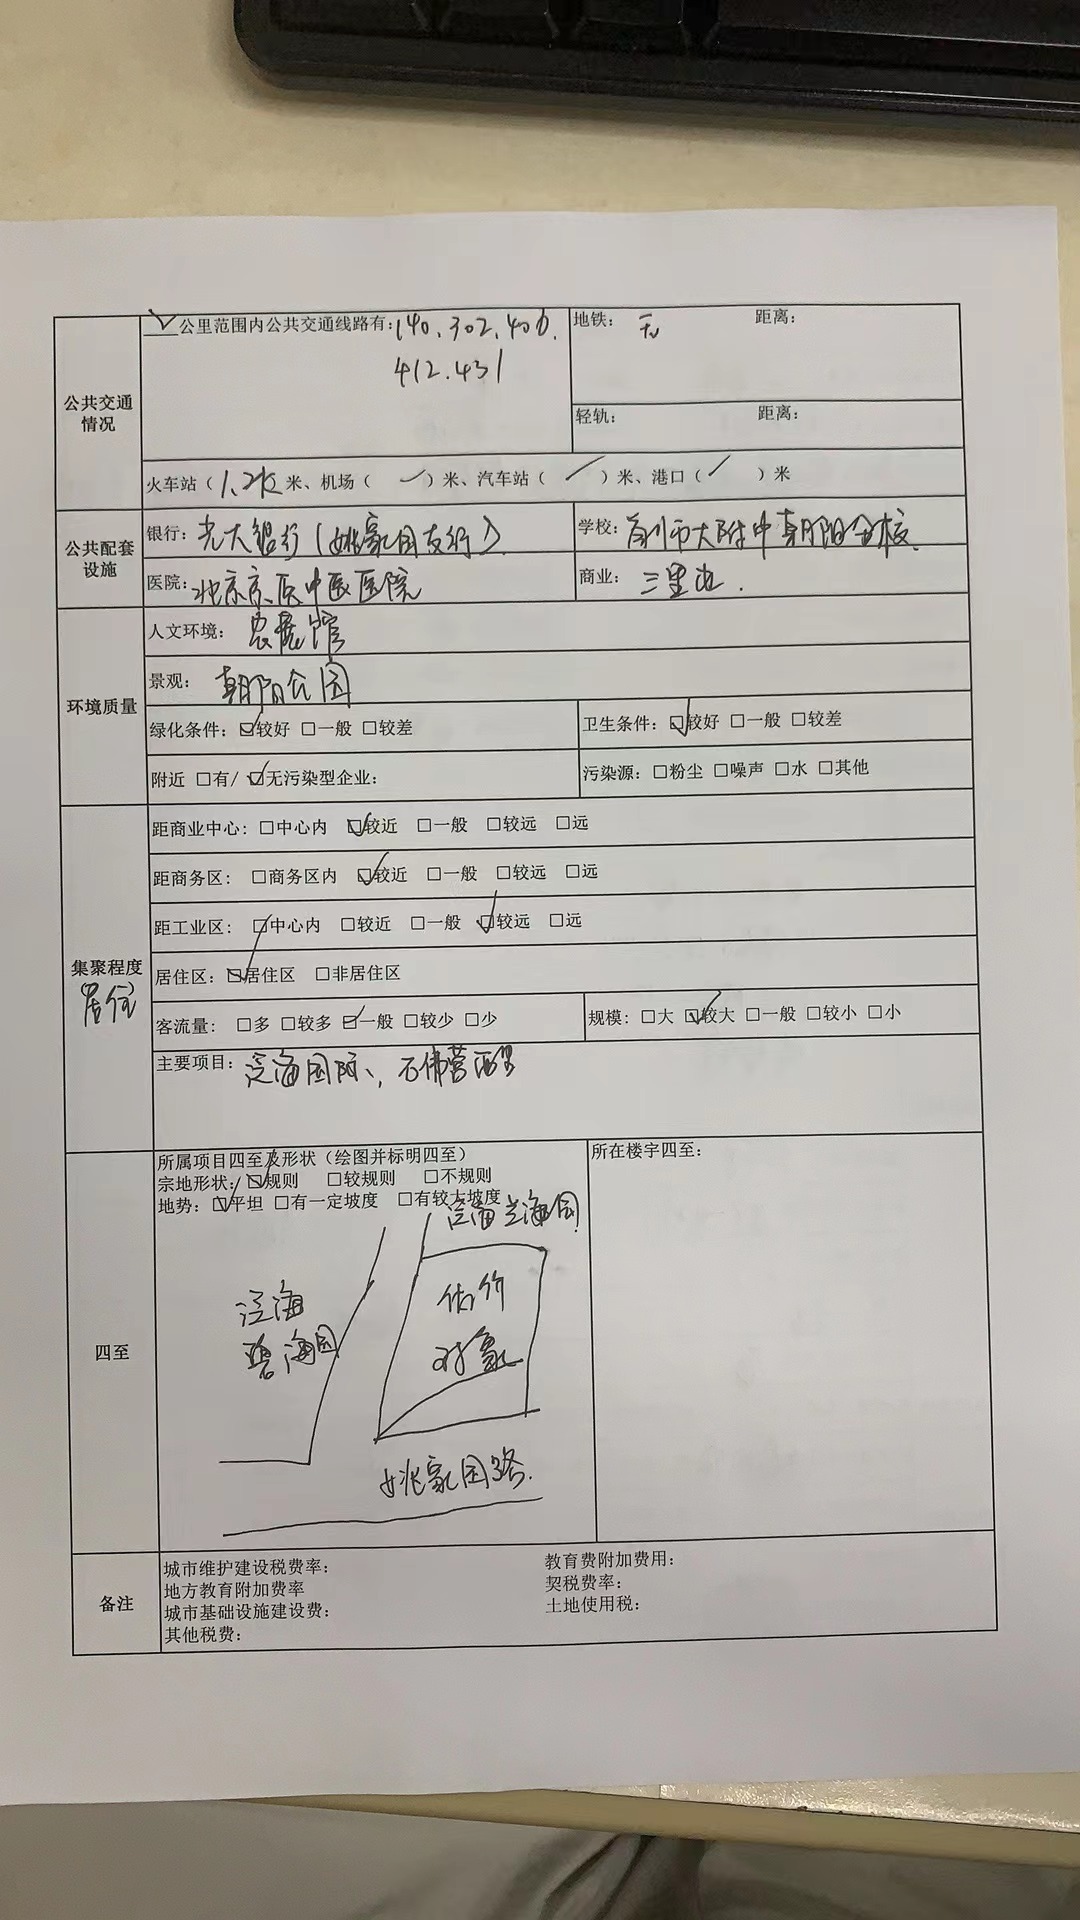 公共交通情况
公里范围内公共交通线路有：140.302.406.
412.431
地铁： 无 距离：
轻轨： 距离：
火车站（1.2K米、机场（ ）米、汽车站（ ）米、港口（ ）米
公共配套设施
银行：光大银行（姚家园支行）
学校：市大附中朝阳分校
医院：北京京医中医医院
商业：三里屯.
环境质量
人文环境：农展馆
景观：朝阳公园
绿化条件：☑较好 □一般 □较差
卫生条件：☑较好 □一般 □较差
附近 □有/ ☑无污染型企业：
污染源：□粉尘 □噪声 □水 □其他
集聚程度
（居住）
距商业中心：□中心内 ☑较近 □一般 □较远 □远
距商务区： □商务区内 ☑较近 □一般 □较远 □远
距工业区： □中心内 □较近 □一般 ☑较远 □远
居住区：☑居住区 □非居住区
客流量： □多 □较多 ☑一般 □较少 □少
规模：□大 ☑较大 □一般 □较小 □小
主要项目：泛海国际、石佛营西里
四至
所属项目四至及形状（绘图并标明四至）
宗地形状：☑规则 □较规则 □不规则
地势：☑平坦 □有一定坡度 □有较大坡度
所在楼宇四至：
泛海兰海园
泛海
碧海园
估价
对象
姚家园路.
备注
城市维护建设税费率： 教育费附加费用：
地方教育附加费率 契税费率：
城市基础设施建设费： 土地使用税：
其他税费：